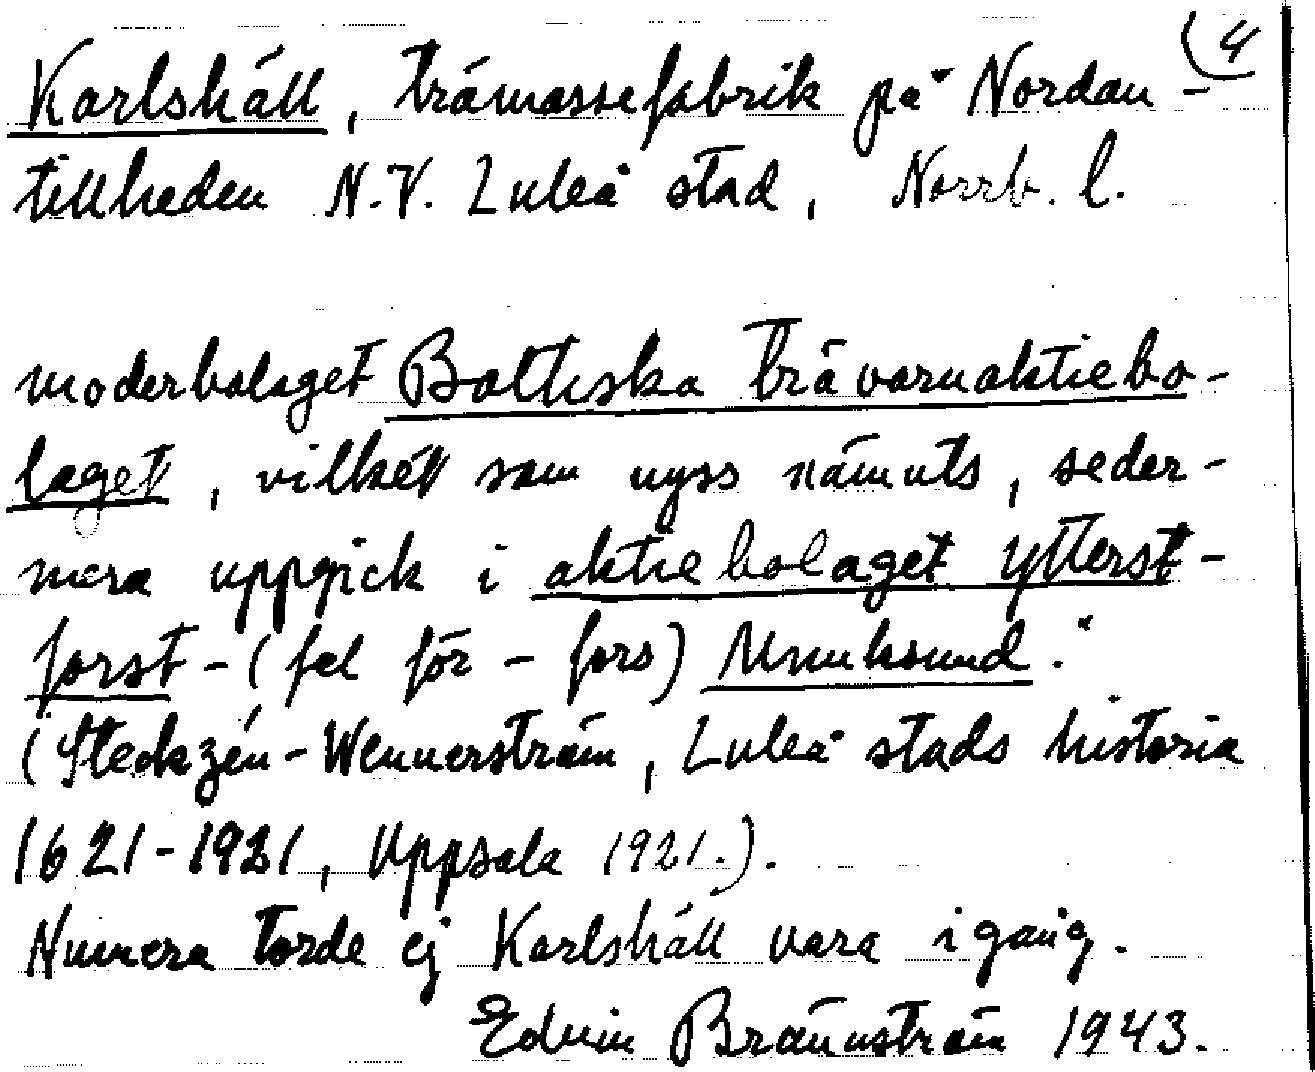 (4
Karlshäll, trämassefabrik på Nordan-
tillheden N.V. Luleå stad, Norrb. l.
moderbolaget Baltiska trävaruaktiebo-
laget, vilket som nyss nämnts, seder-
mera uppgick i aktiebolaget Ytterst-
forst-(fel för - fors) Munksund."
(Steckzén-Wennerström, Luleå stads historia
1621-1921, Uppsala 1921.).
Numera torde ej Karlshäll vara igång.
Edvin Brännström 1943.